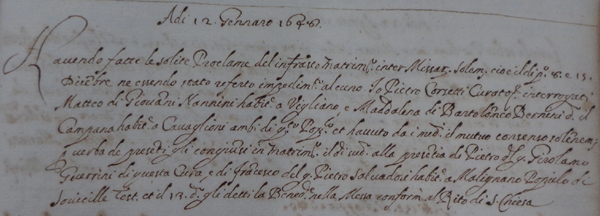 Adi 12 Gennaro 1648.
Havendo fatte le solite Proclame del infratto matrim.º inter Missar. solem. cioè il di p.º 8. e 15
Dicẽbre, ne essendo stato referto impedim.º alcuno Io Pietro Corsetti Curato interrogai
Matteo di Giovani Nannini habit.e a Vegliano, e Maddalena di Bartolomeo Bernini d. il
Campana habit.e a Cavaglioni ambi di q.sto Pop.º et havuto da i med.i il mutuo consenso solenem.
p verba de presẽti gli congiunsi in matrim.º il di sud.º alla presẽtia di Pietro del q. Girolamo
Guerrini di questa Cura, e di frãcesco del q. Pietro Salvadori habit.e a Malignano Popolo de
Soicille Test. et il 13. d.º gli detti la Bened.ne nella Messa conform. al Rito di S. Chiesa